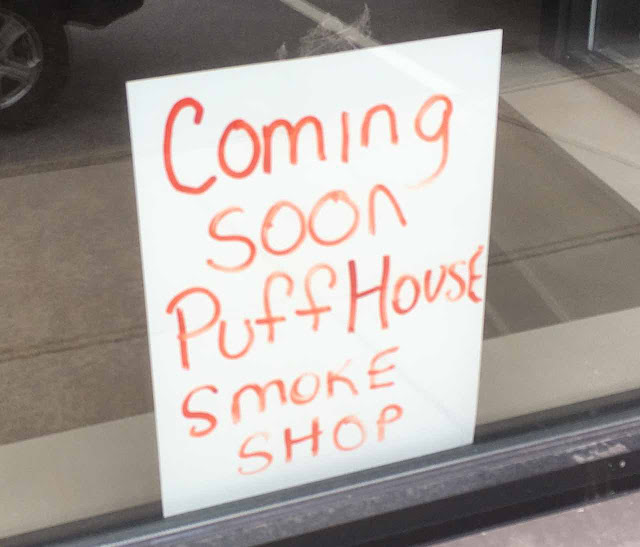 Coming
soon
Puff House
SMOKE
SHOP